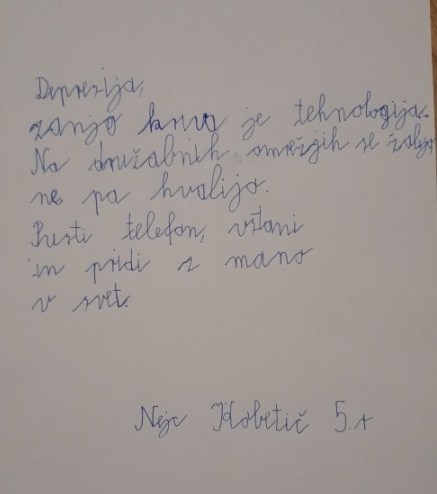 Depresija,
zanjo kriva je tehnologija.
Na družabnih omrežjih se žalijo
ne pa hvalijo.
Pusti telefon, vstani
in pridi z mano
v svet.
Nejc 5.